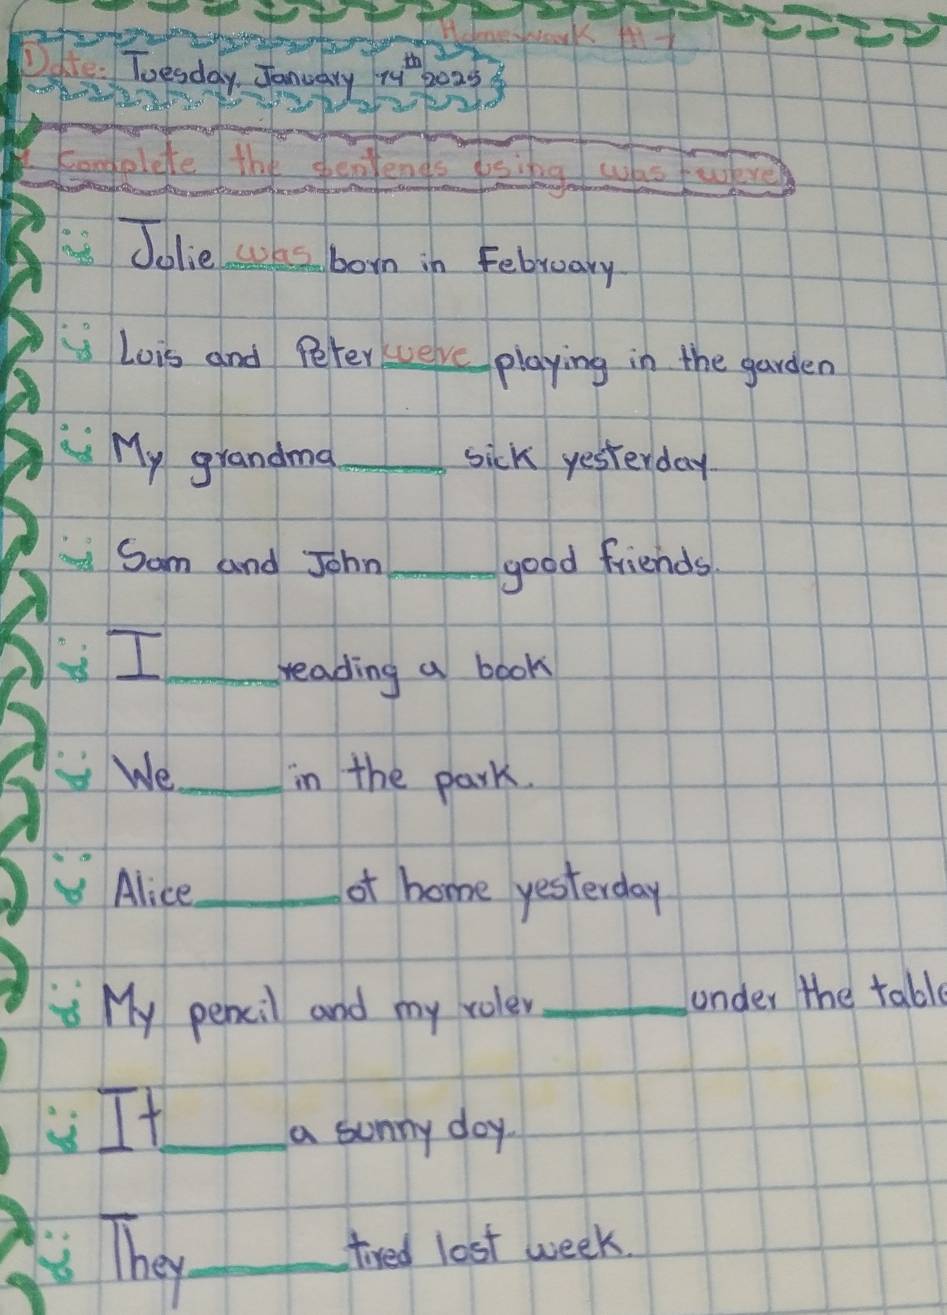 Homework #1
Date: Tuesday, January 14th 2025
1 Complete the sentenes using was - were
Julie was born in February
Luis and Peter were playing in the garden
My grandma ______ sick yesterday.
Sam and John ______ good friends.
I ______ reading a book
We ______ in the park.
Alice ______ at home yesterday
My pencil and my ruler ______ under the table
It ______ a sunny day.
They ______ tired last week.